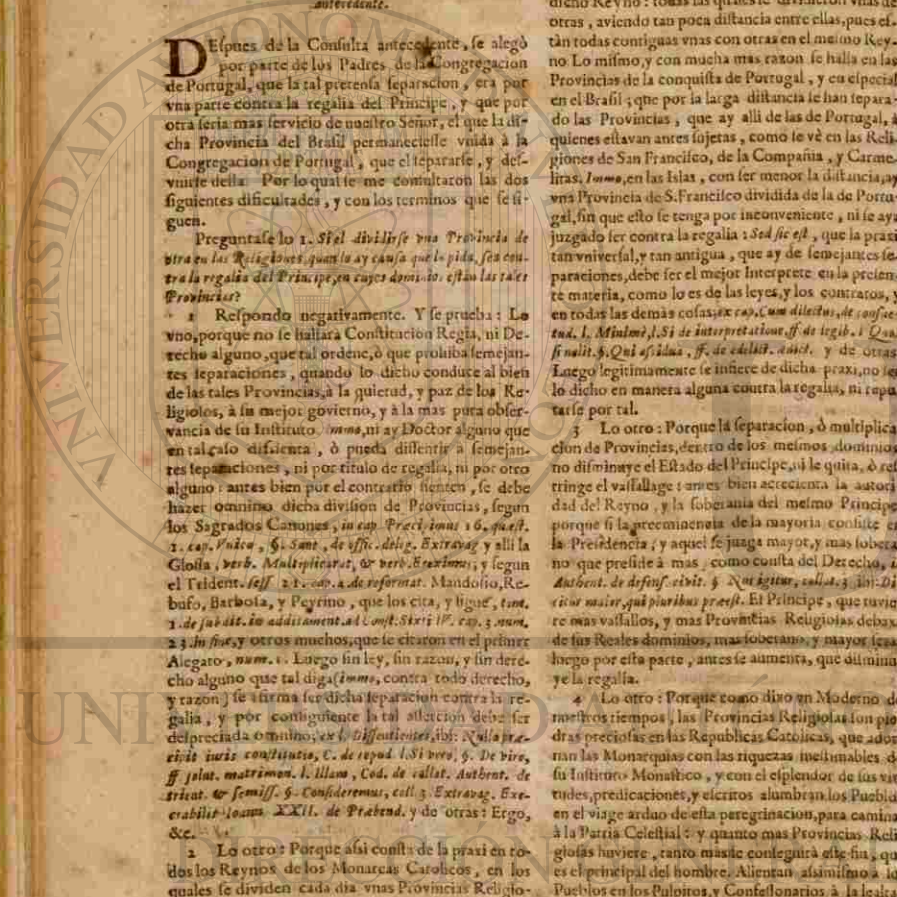 antecedente.
DEspues de la Consulta antecedente, se alegò
por parte de los Padres de la Congregacion
de Portugal, que la tal pretensa separacion, era por
vna parte contra la regalia del Principe, y que por
otra seria mas servicio de nuestro Señor, el que la di-
cha Provincia del Brasil permaneciesse vnida à la
Congregacion de Portugal, que el separarse, y des-
vnirse della. Por lo qual se me consultaron las dos
siguientes dificultades, y con los terminos que se si-
guen.
Preguntase lo 1. Si el dividirse vna Provincia de
otra en las Religiones, quando ay causa que lo pida, sea con-
tra la regalia del Principe, en cuyos dominios estàn las tales
Provincias?
1 Respondo negativamente. Y se prueba: Lo
vno, porque no se hallarà Constitucion Regia, ni De-
recho alguno, que tal ordene, ò que prohiba semejan-
tes separaciones, quando lo dicho conduce al bien
de las tales Provincias, à la quietud, y paz de los Re-
ligiosos, à su mejor govierno, y à la mas pura obser-
vancia de su Instituto. immo, ni ay Doctor alguno que
en tal caso dissienta, ò pueda dissentir à semejan-
tes separaciones, ni por titulo de regalia, ni por otro
alguno: antes bien por el contrario sienten, se debe
hazer omnino dicha division de Provincias, segun
los Sagrados Canones, in cap. Præcipimus 16. quæst.
1. cap. Vnica, §. Sane, de offic. deleg. Extravag y alli la
Glossa, verb. Multiplicatur, & verb. Eximimus, y segun
el Trident. sess 21. cap. 4. de reformat. Mandosio, Re-
bufo, Barbosa, y Peyrino, que los cita, y sigue, tom.
1. de subdit. in additament. ad Const. Sixti IV. cap. 3. num.
23. in fine, y otros muchos, que se citaron en el primer
Alegato, num. 1. Luego sin ley, sin razon, y sin dere-
cho alguno que tal diga (immo, contra todo derecho,
y razon) se afirma ser dicha separacion contra la re-
galia, y por consiguiente la tal assercion debe ser
despreciada omnino, ex l. Dissentientes, ibi: Nulla præ-
civit iuris constitutio, C. de repud. l. Si vero, §. De viro,
ff solut. matrimon. l. Illam, Cod. de collat. Authent. de
trient. & semiss. §. Consideremus, coll 3. Extravag. Exe-
crabilis Ioann. XXII. de Præbend. y de otras: Ergo,
&c.
2 Lo otro: Porque assi consta de la praxi en to-
dos los Reynos de los Monarcas Catolicos, en los
quales se dividen cada dia vnas Provincias Religio-
dicho Reyno: todas las quales se dividieron vnas de
otras, aviendo tan poca distancia entre ellas, pues es-
tàn todas contiguas vnas con otras en el mesmo Rey-
no Lo mismo, y con mucha mas razon se halla en las
Provincias de la conquista de Portugal, y en especial
en el Brasil; que por la larga distancia se han separa-
do las Provincias, que ay alli de las de Portugal, à
quienes estavan antes sujetas, como se vè en las Reli-
giones de San Francisco, de la Compañia, y Carme-
litas. Immo, en las Islas, con ser menor la distancia, ay
vna Provincia de S. Francisco dividida de la de Portu-
gal, sin que esto se tenga por inconveniente, ni se aya
juzgado ser contra la regalia: Sed sic est, que la praxi
tan vniversal, y tan antigua, que ay de semejantes se-
paraciones, debe ser el mejor Interprete en la presen-
te materia, como lo es de las leyes, y los contratos, y
en todas las demàs cosas, ex cap. Cum dilectus, de consue-
tud. l. Minimè, l. Si de interpretatione, ff de legib. l Quod
si nolit. §. Qui assidua, ff. de edilit. edict. y de otras
Luego legitimamente se infiere de dicha praxi, no ser
lo dicho en manera alguna contra la regalia, ni repu-
tarse por tal.
3 Lo otro: Porque la separacion, ò multiplica-
cion de Provincias, dentro de los mesmos dominios
no disminuye el Estado del Principe, ni le quita, ò res-
tringe el vassallage: antes bien acrecienta la autori-
dad del Reyno, y la soberania del mesmo Principe
porque si la preeminencia de la mayoria consiste en
la Presidencia, y aquel se juzga mayor, y mas sobera-
no que preside à mas, como consta del Derecho, in
Authent. de defens. civit. § Nos igitur, collat. 3 ibi: Di-
citur maior, qui pluribus præest. El Principe, que tuvie-
re mas vassallos, y mas Provincias Religiosas debaxo
de sus Reales dominios, mas soberano, y mayor serà
luego por esta parte, antes se aumenta, que disminu-
ye la regalia.
4 Lo otro: Porque como dixo vn Moderno de
nuestros tiempos, las Provincias Religiosas son pie-
dras preciosas en las Republicas Catolicas, que ador-
nan las Monarquias con las riquezas inestimables de
su Instituto Monastico, y con el esplendor de sus vir-
tudes, predicaciones, y escritos alumbran los Pueblos
en el viage arduo de esta peregrinacion, para caminar
à la Patria Celestial: y quanto mas Provincias Reli-
giosas huviere, tanto mas se conseguirà este fin, que
es el principal del hombre. Alientan assimismo à los
Pueblos en los Pulpitos, y Confessonarios à la lealta